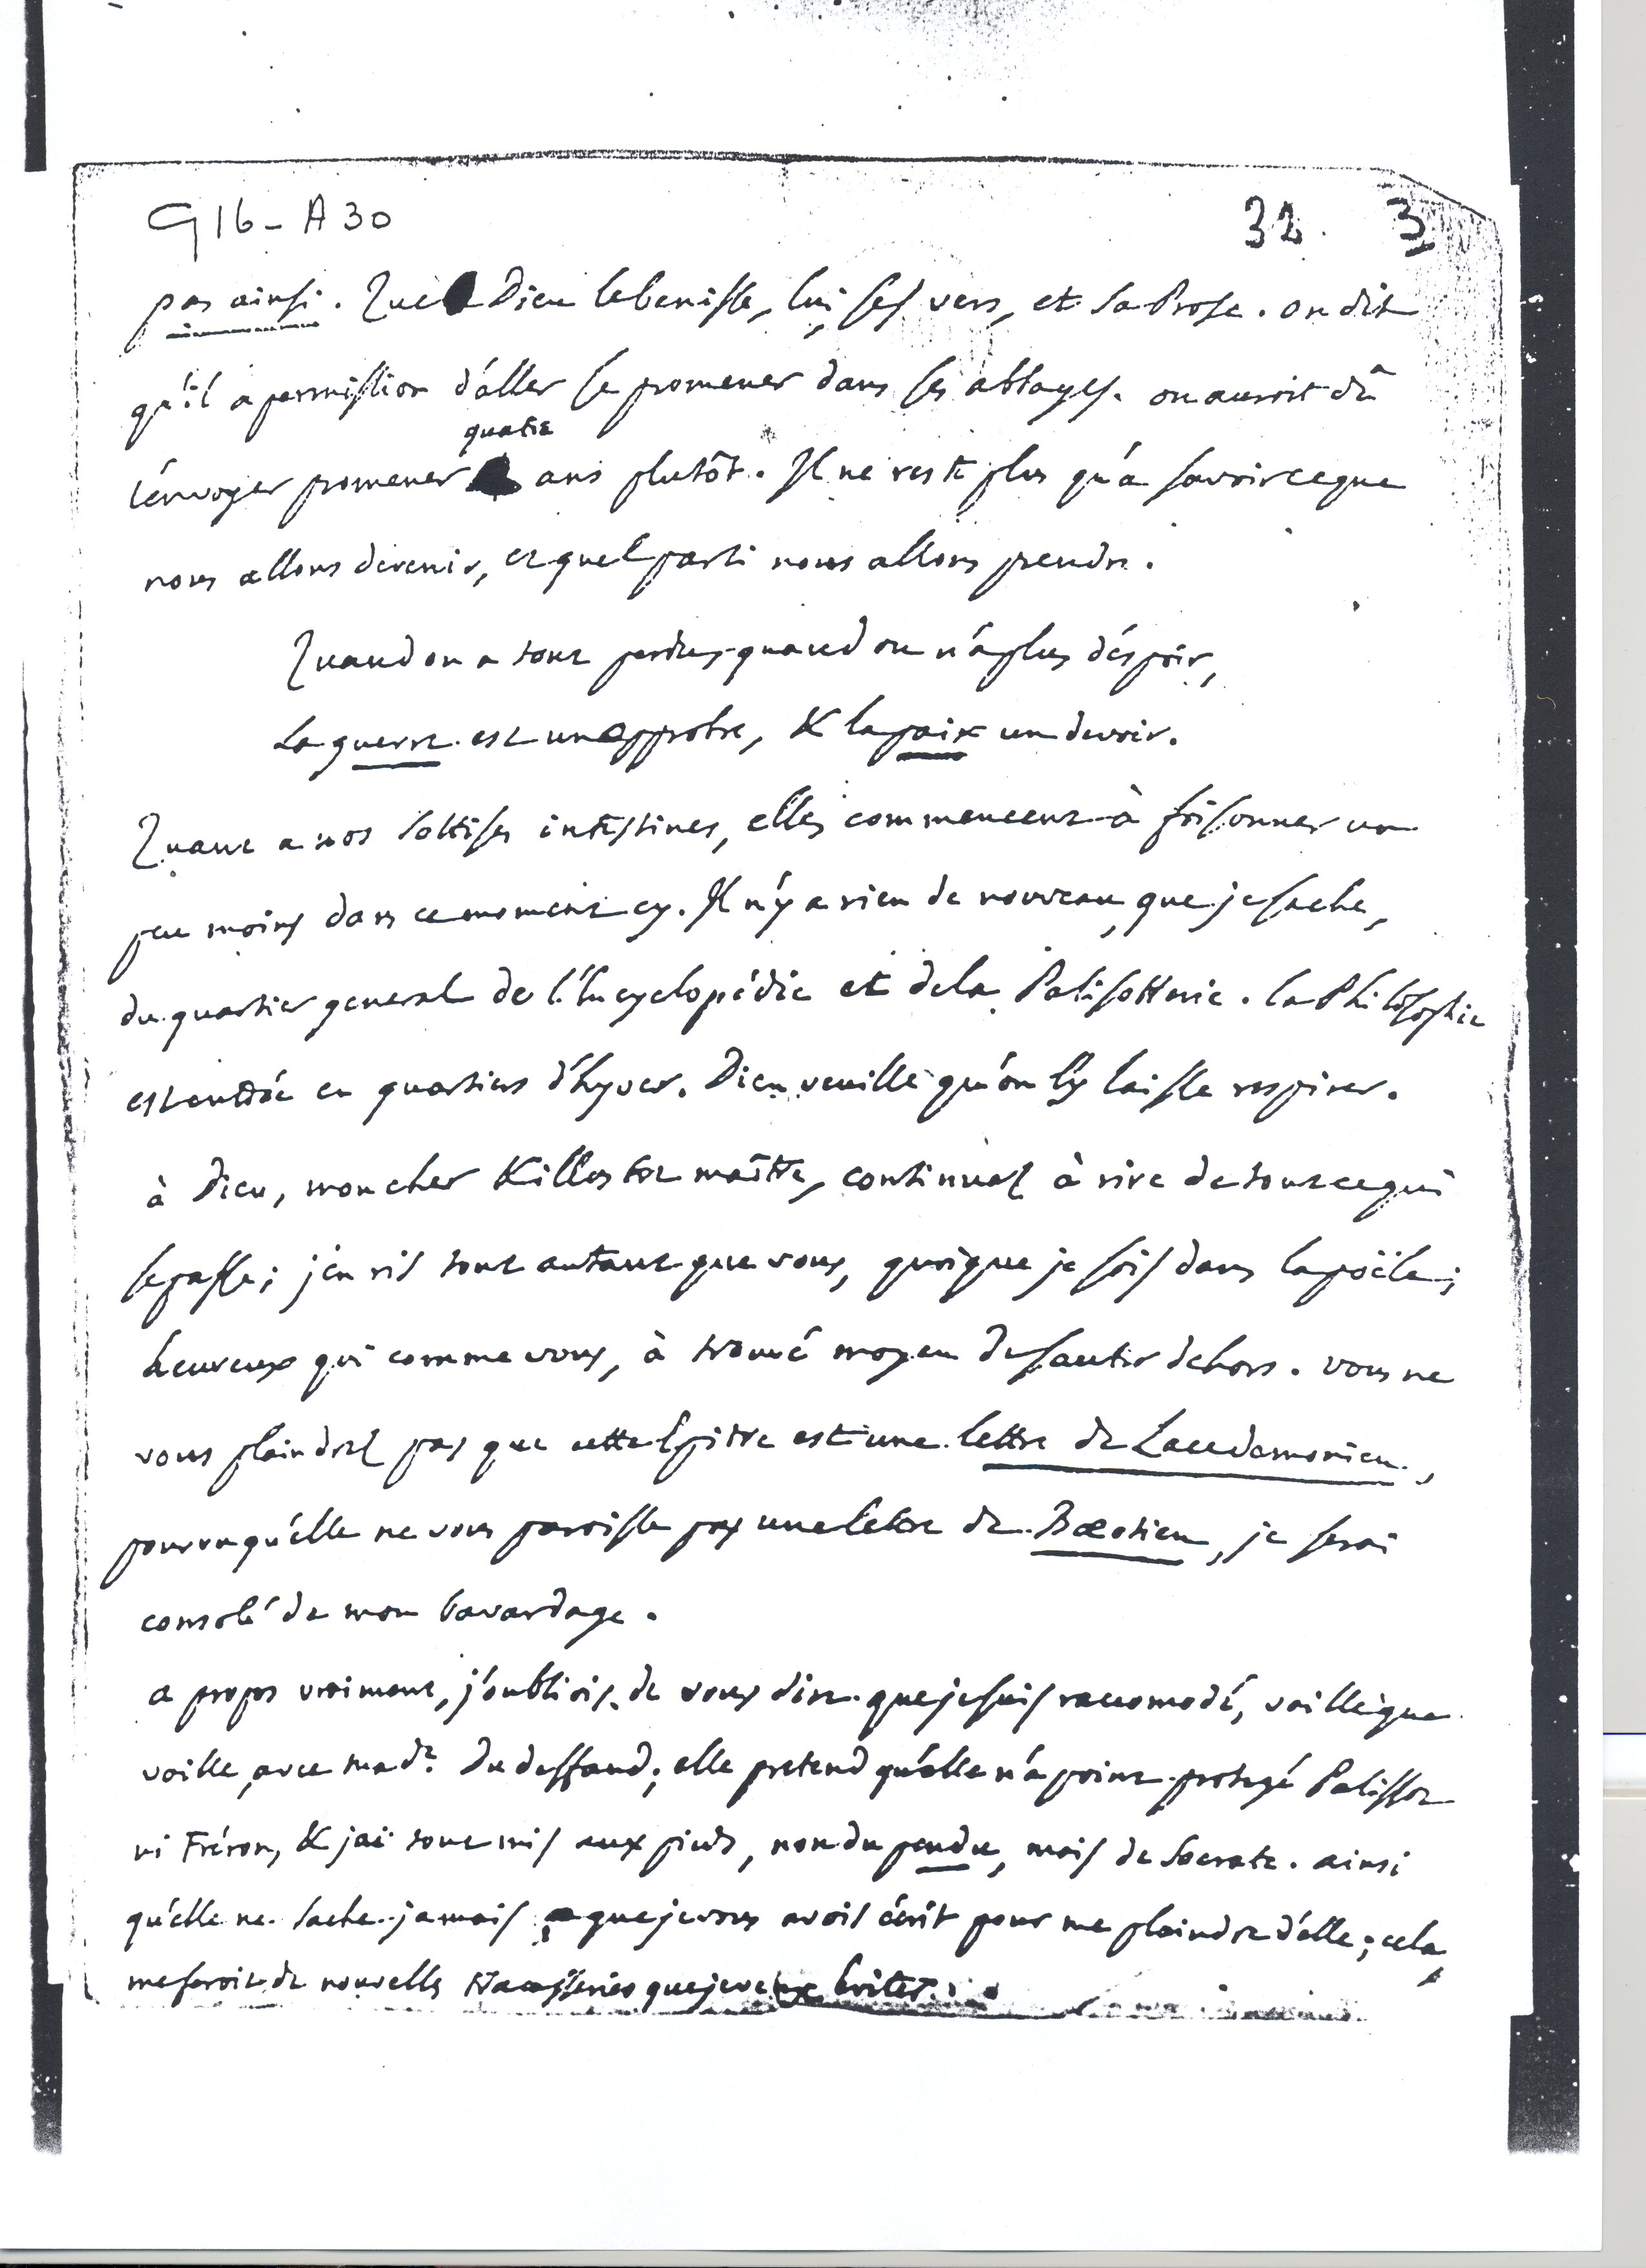 G16-A30 32. 3
pas ainsi. Que Dieu le benisse, lui, ses vers, et sa Prose. on dit
qu'il a permission d'aller se promener dans ses abbayes. on auroit dû
quatre
l'envoyer promener ans plutôt. Il ne reste plus qu'à savoir ce que
nous allons devenir, et quel parti nous allons prendre.
Quand on a tout perdu, quand on n'a plus d'espoir,
La guerre est un opprobre, & la paix un devoir.
Quant a nos sottises intestines, elles commencent à foisonner un
peu moins dans ce moment cy. Il n'y a rien de nouveau, que je sache,
du quartier general de l'Encyclopédie et de la Palisotterie. la Philosophie
est entrée en quartiers d'hyver. Dieu veuille qu'on l'y laisse respirer.
à Dieu, mon cher & illustre maître, continuez à rire de tout ce qui
se passe; j'en ris tout autant que vous, quoique je sois dans la poële;
heureux qui comme vous, à trouvé moyen de sauter dehors. vous ne
vous plaindrez pas que cette Epitre est une lettre de Lacedemonien,
pourvu qu'elle ne vous paroisse pas une lettre de Bœotien, je serai
consolé de mon bavardage.
a propos vraiment, j'oubliois de vous dire que je suis raccomodé, vaille que
vaille, avec made. Du deffand; elle pretend qu'elle n'a point protegé Palissot
ni Fréron, & j'ai tout mis aux pieds, non du pendu, mais de Socrate. ainsi
qu'elle ne sache jamais que je vous avois écrit pour me plaindre d'elle; cela
me feroit de nouvelles tracasseries que je veux eviter.